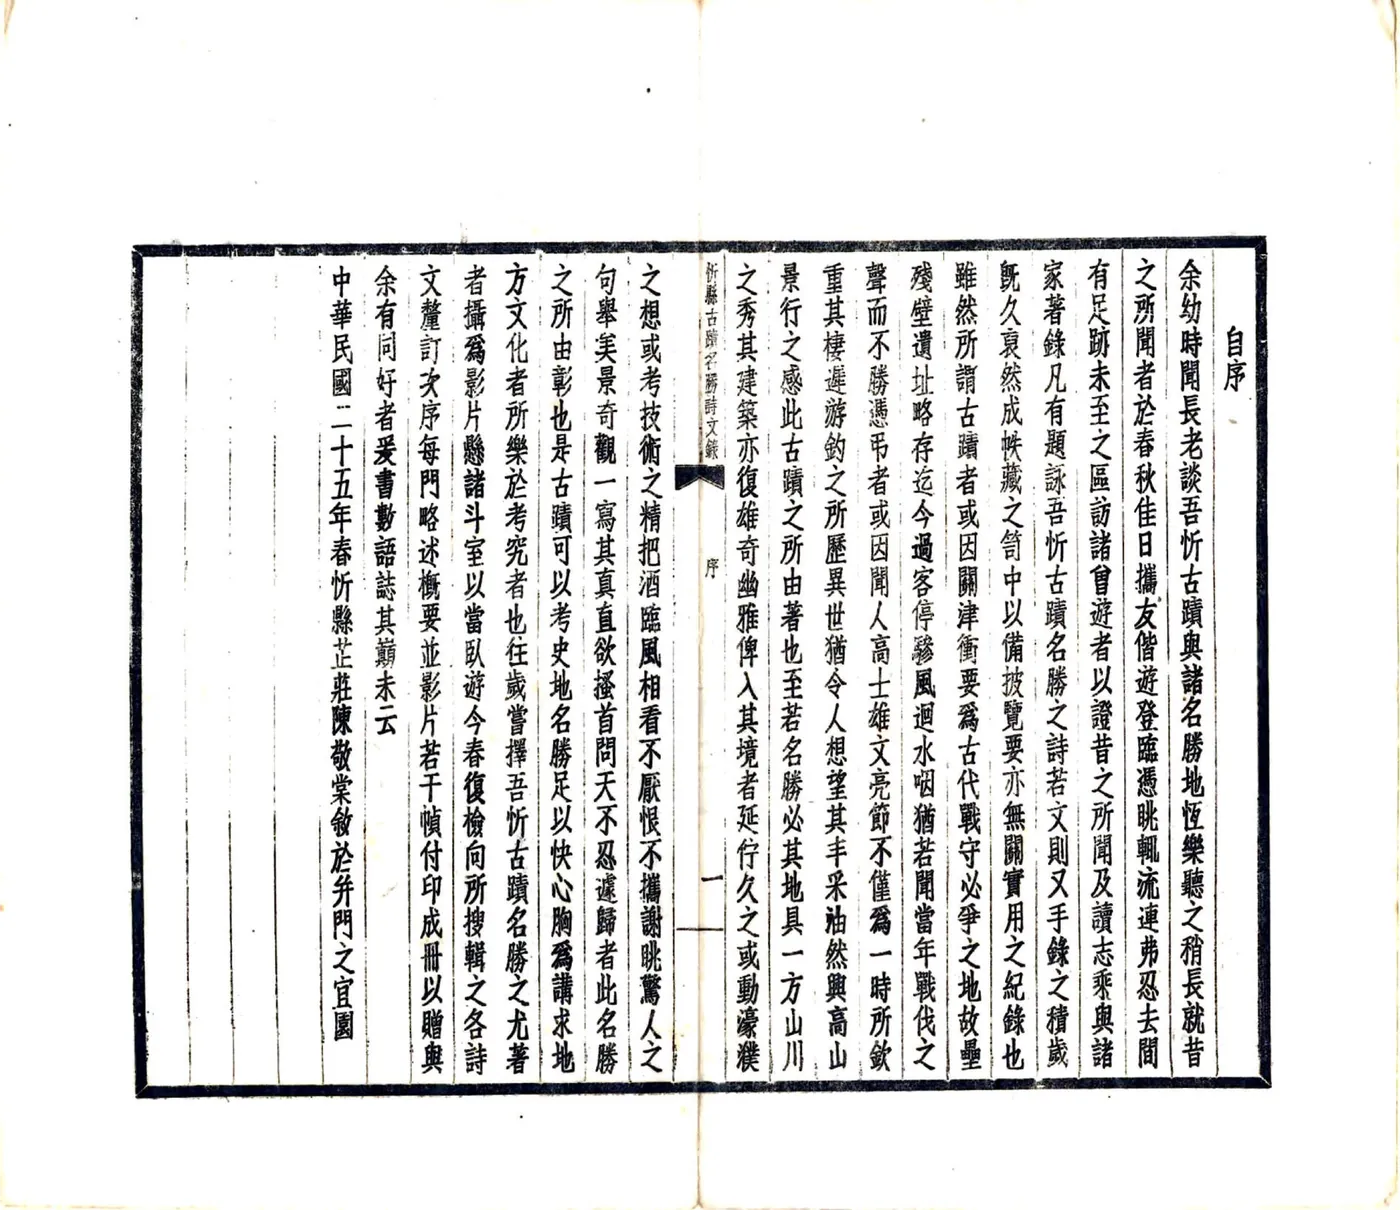 自序
余幼時聞長老談吾忻古蹟與諸名勝地恆樂聽之稍長就昔
之所聞者於春秋佳日攜友偕遊登臨憑眺輒流連弗忍去間
有足跡未至之區訪諸曾遊者以證昔之所聞及讀志乘與諸
家著錄凡有題詠吾忻古蹟名勝之詩若文則又手錄之積歲
旣久裒然成帙藏之笥中以備披覽要亦無關實用之紀錄也
雖然所謂古蹟者或因關津衝要爲古代戰守必爭之地故壘
殘壁遺址略存迄今過客停驂風迴水咽猶若聞當年戰伐之
聲而不勝憑弔者或因聞人高士雄文亮節不僅爲一時所欽
重其棲遲游釣之所歷異世猶令人想望其丰采油然興高山
景行之感此古蹟之所由著也至若名勝必其地具一方山川
之秀其建築亦復雄奇幽雅俾入其境者延佇久之或動濠濮
忻縣古蹟名勝詩文錄 序 一
之想或考技術之精把酒臨風相看不厭恨不攜謝眺驚人之
句舉美景奇觀一寫其真直欲搔首問天不忍遽歸者此名勝
之所由彰也是古蹟可以考史地名勝足以快心胸爲講求地
方文化者所樂於考究者也往歲嘗擇吾忻古蹟名勝之尤著
者攝爲影片懸諸斗室以當臥遊今春復檢向所搜輯之各詩
文釐訂次序每門略述概要並影片若干幀付印成冊以贈與
余有同好者爰書數語誌其巔末云
中華民國二十五年春忻縣芷莊陳敬棠敘於幷門之宜園